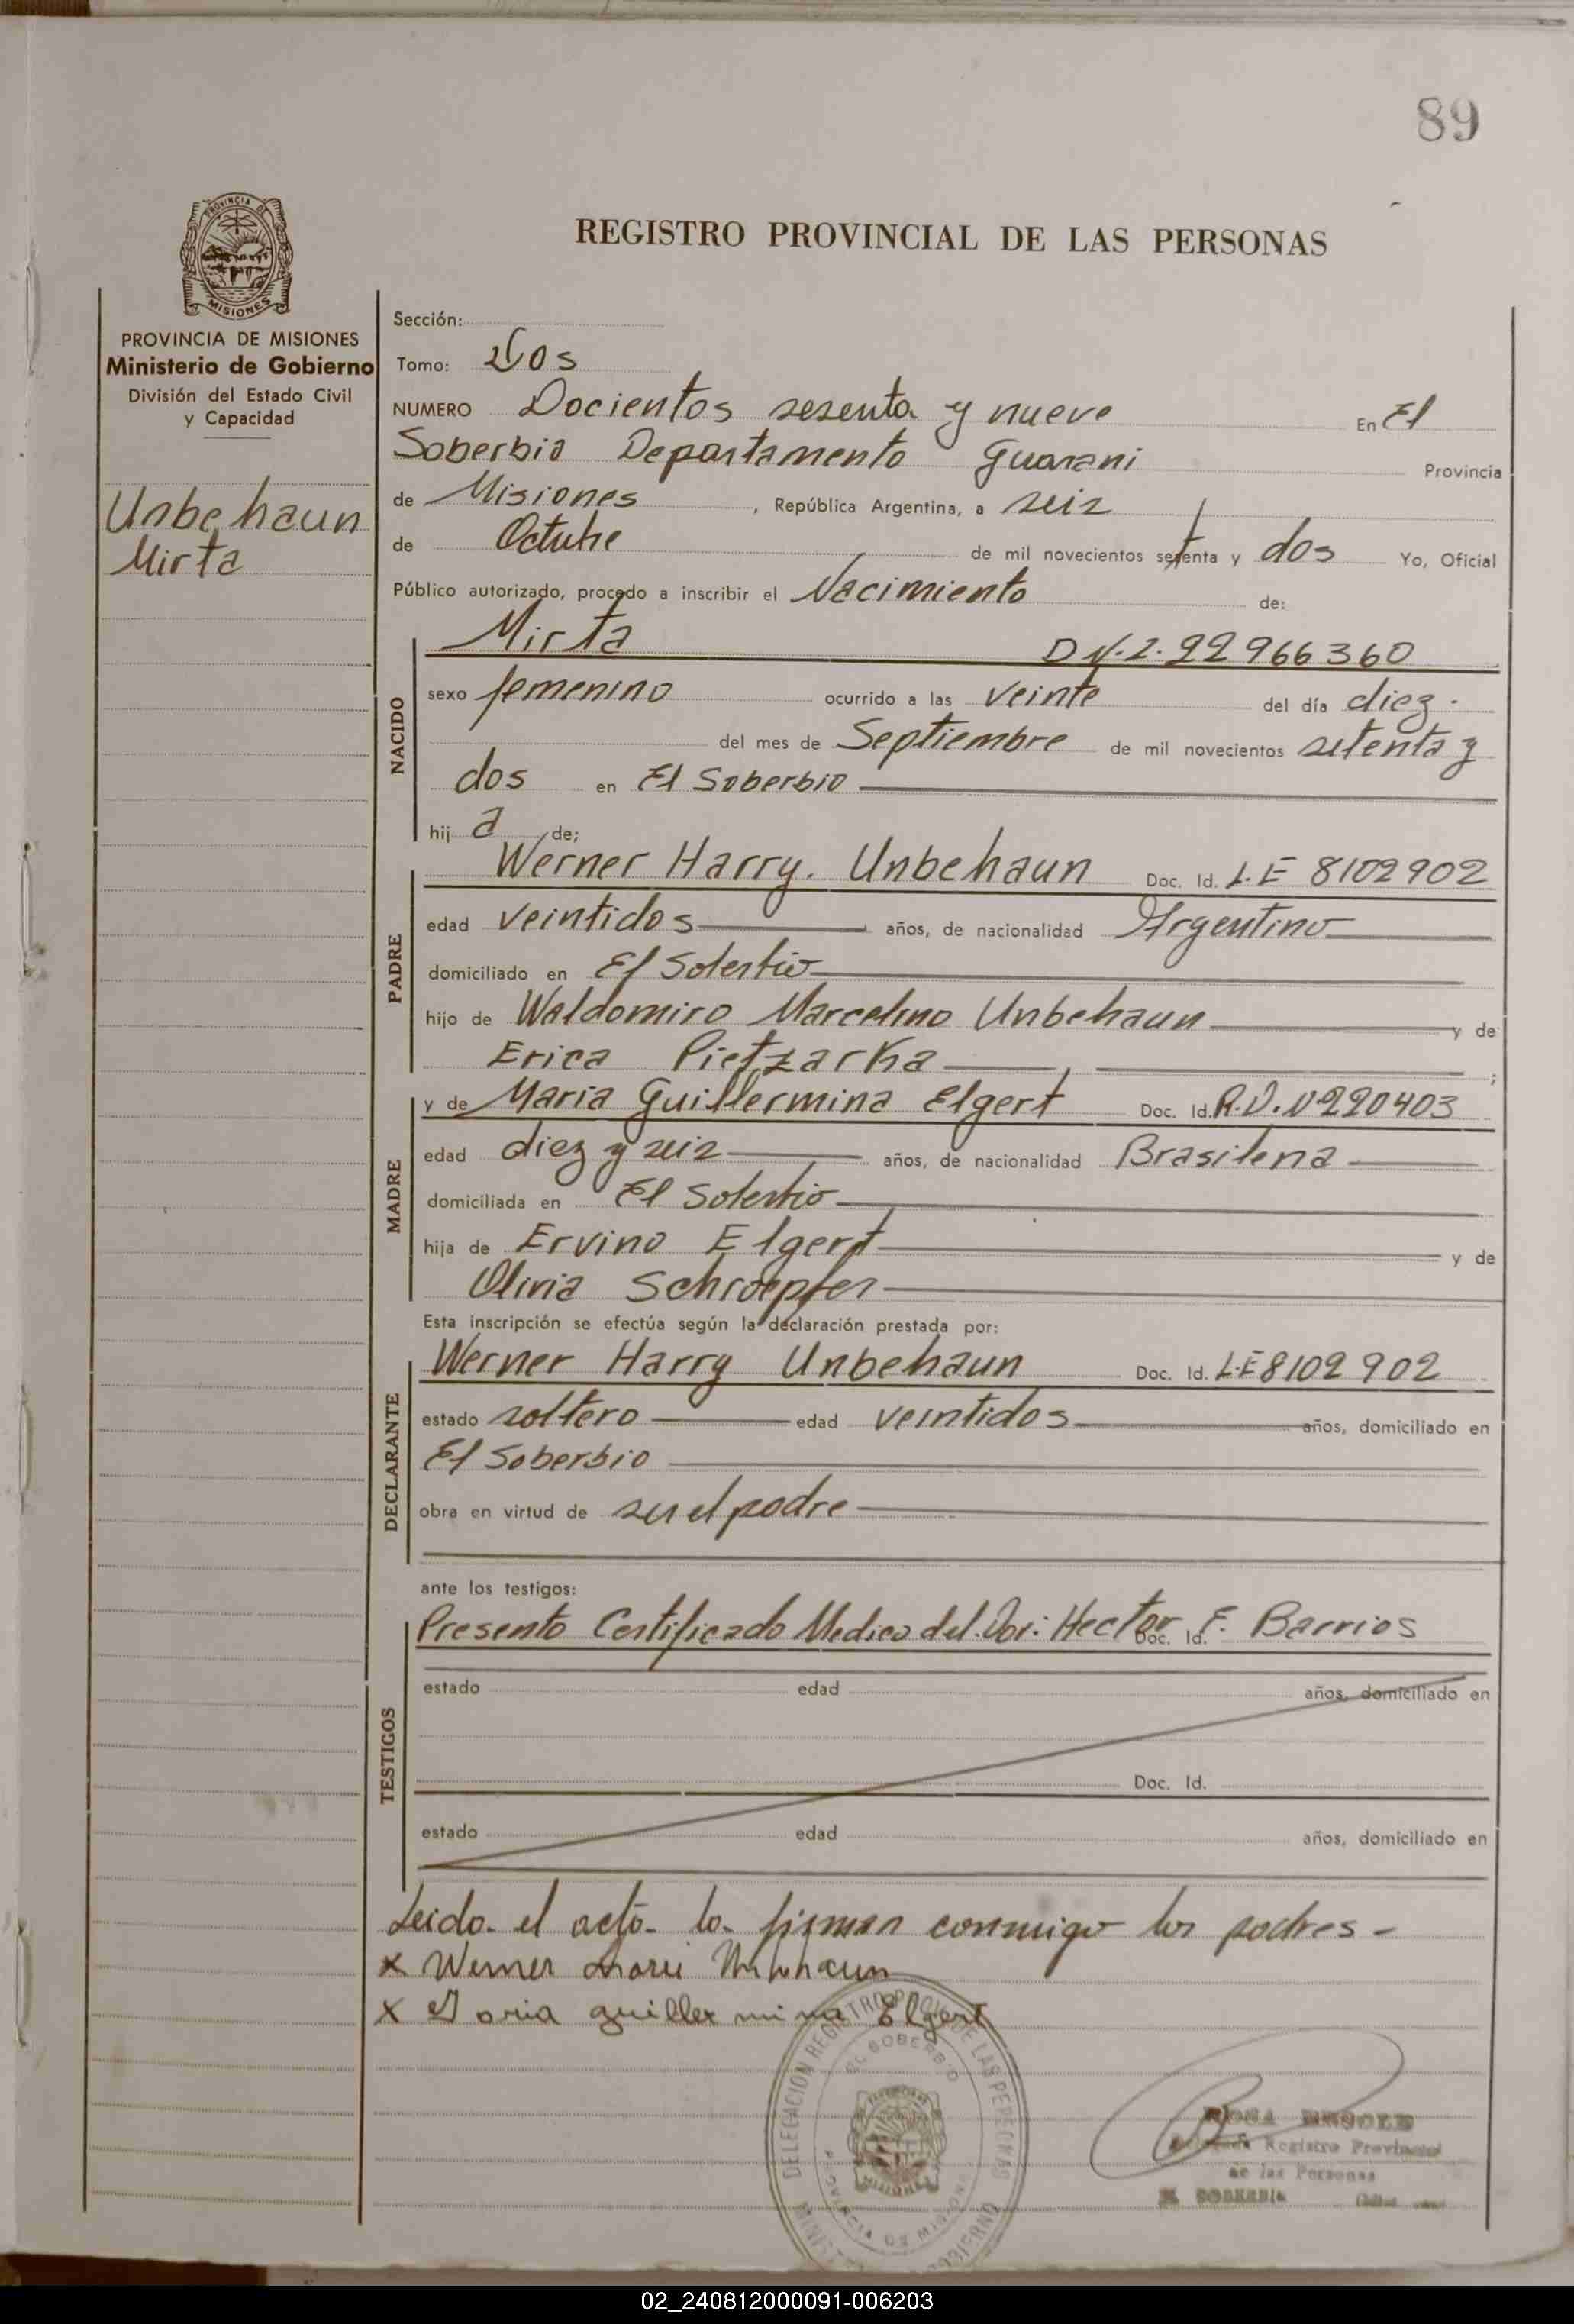 89
PROVINCIA DE
MISIONES
REGISTRO PROVINCIAL DE LAS PERSONAS
PROVINCIA DE MISIONES
Ministerio de Gobierno
División del Estado Civil
y Capacidad
Unbehaun
Mirta
Sección:
Tomo: Dos
NUMERO Docientos sesenta y nueve En El
Soberbio Departamento Guarani Provincia
de Misiones, República Argentina, a seis
de Octubre de mil novecientos setenta y dos Yo, Oficial
Público autorizado, procedo a inscribir el Nacimiento de:
NACIDO
Mirta D.N.I. 22966360
sexo femenino ocurrido a las veinte del día diez.
del mes de Septiembre de mil novecientos setenta y
dos en El Soberbio
hij a de;
PADRE
Werner Harry. Unbehaun Doc. Id. L.E 8102902
edad veintidos años, de nacionalidad Argentino
domiciliado en El Soberbio
hijo de Waldomiro Marcelino Unbehaun y de
Erica Pietzarka ;
MADRE
y de Maria Guillermina Elgert Doc. Id. R.D.N 220403
edad diez y seis años, de nacionalidad Brasilena
domiciliada en El Soberbio
hija de Ervino Elgert y de
Olivia Schroepfer
Esta inscripción se efectúa según la declaración prestada por:
DECLARANTE
Werner Harry Unbehaun Doc. Id. L.E 8102902
estado soltero edad veintidos años, domiciliado en
El Soberbio
obra en virtud de ser el padre
ante los testigos:
TESTIGOS
Presento Certificado Medico del Dor: Hector F. Barrios Doc. Id.
estado edad años, domiciliado en
Doc. Id.
estado edad años, domiciliado en
Leido el acto lo firman conmigo los padres -
x Werner
x Maria guillermina Elgert
DELEGACION REGISTRO PROV. DE LAS PERSONAS
EL SOBERBIO
PROVINCIA DE MISIONES
ROSA
Delegada Registro Provincial
de las Personas
EL SOBERBIO
02_240812000091-006203